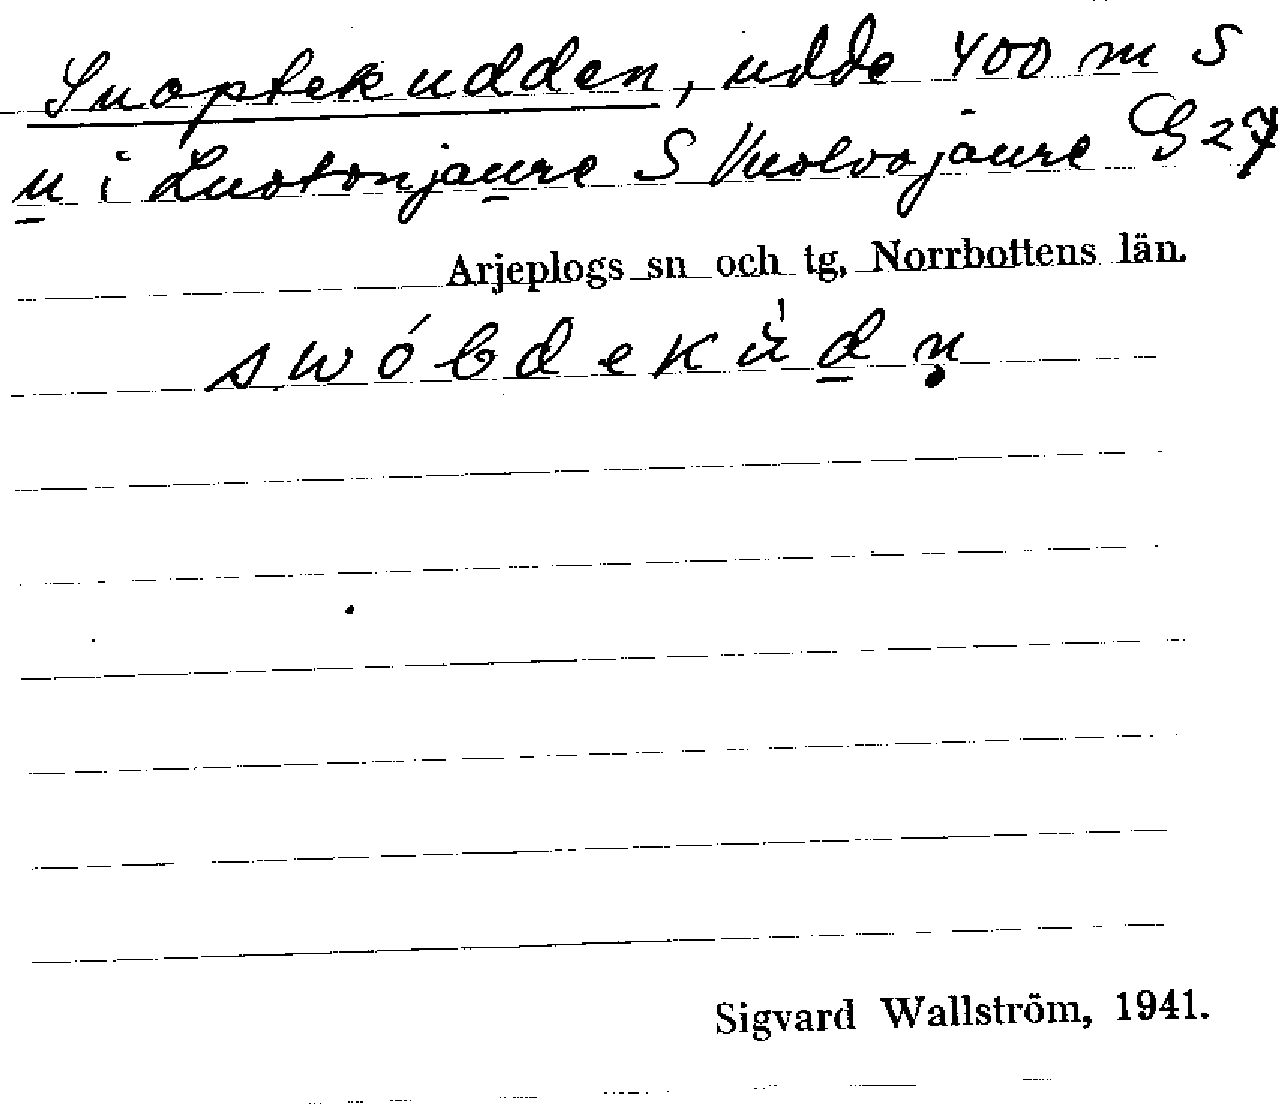 Suoptekudden, udde 400 m S
u i Luotonjaure S Vuolvojaure G 27
Arjeplogs sn och tg, Norrbottens län.
swóbdekùdṇ
Sigvard Wallström, 1941.